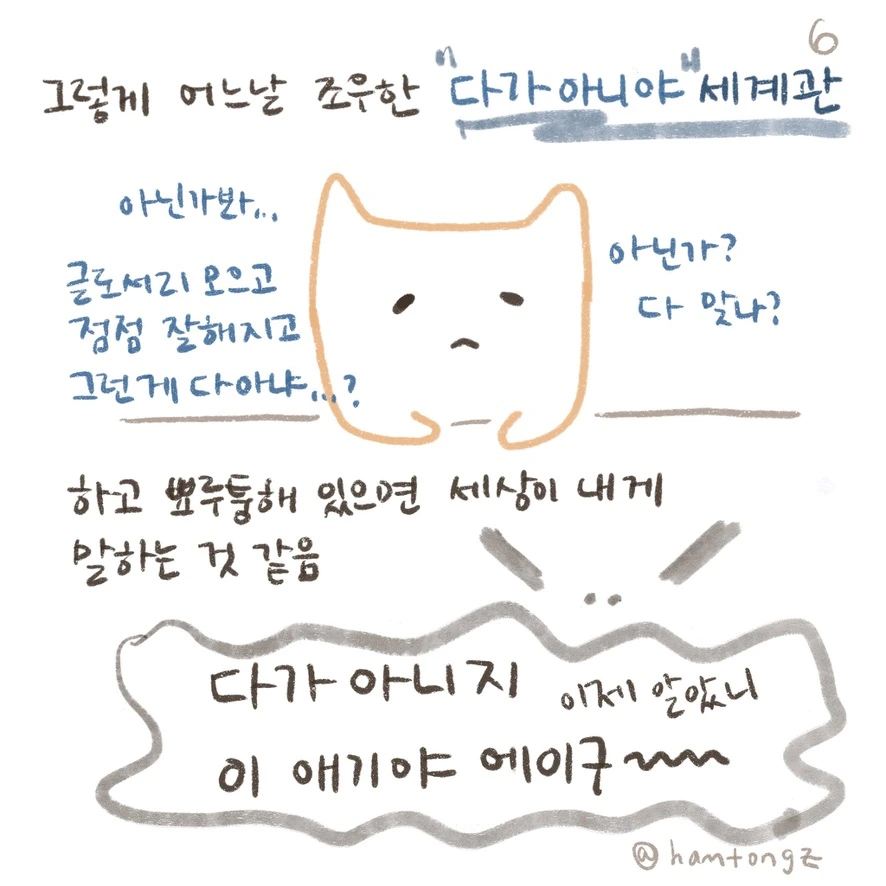 6
그렇게 어느날 조우한 "다가아니야" 세계관
아닌가봐...
글로서리 모으고
점점 잘해지고
그런게 다아냐...?
아닌가?
다 맞나?
하고 뾰루퉁해 있으면 세상이 내게
말하는 것 같음
다가 아니지 이제 알았니
이 애기야 에이구~~~
@hamtongz